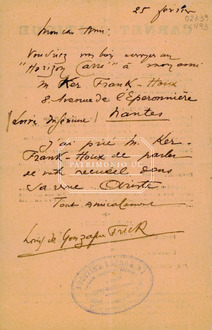 25 février
Mon cher Ami:
Voudriez vous bien envoyer un
"Horizon Carré" à mon ami
M Ker Frank-Houx
8 Avenue de l'Eperonnière
(Loire Inférieure) Nantes
J'ai prié M. Ker-
Frank-Houx de parler
de votre recueil dans
sa revue
Tout amicalement
Louis de Gonzague Frick
PATRIMONIO UC